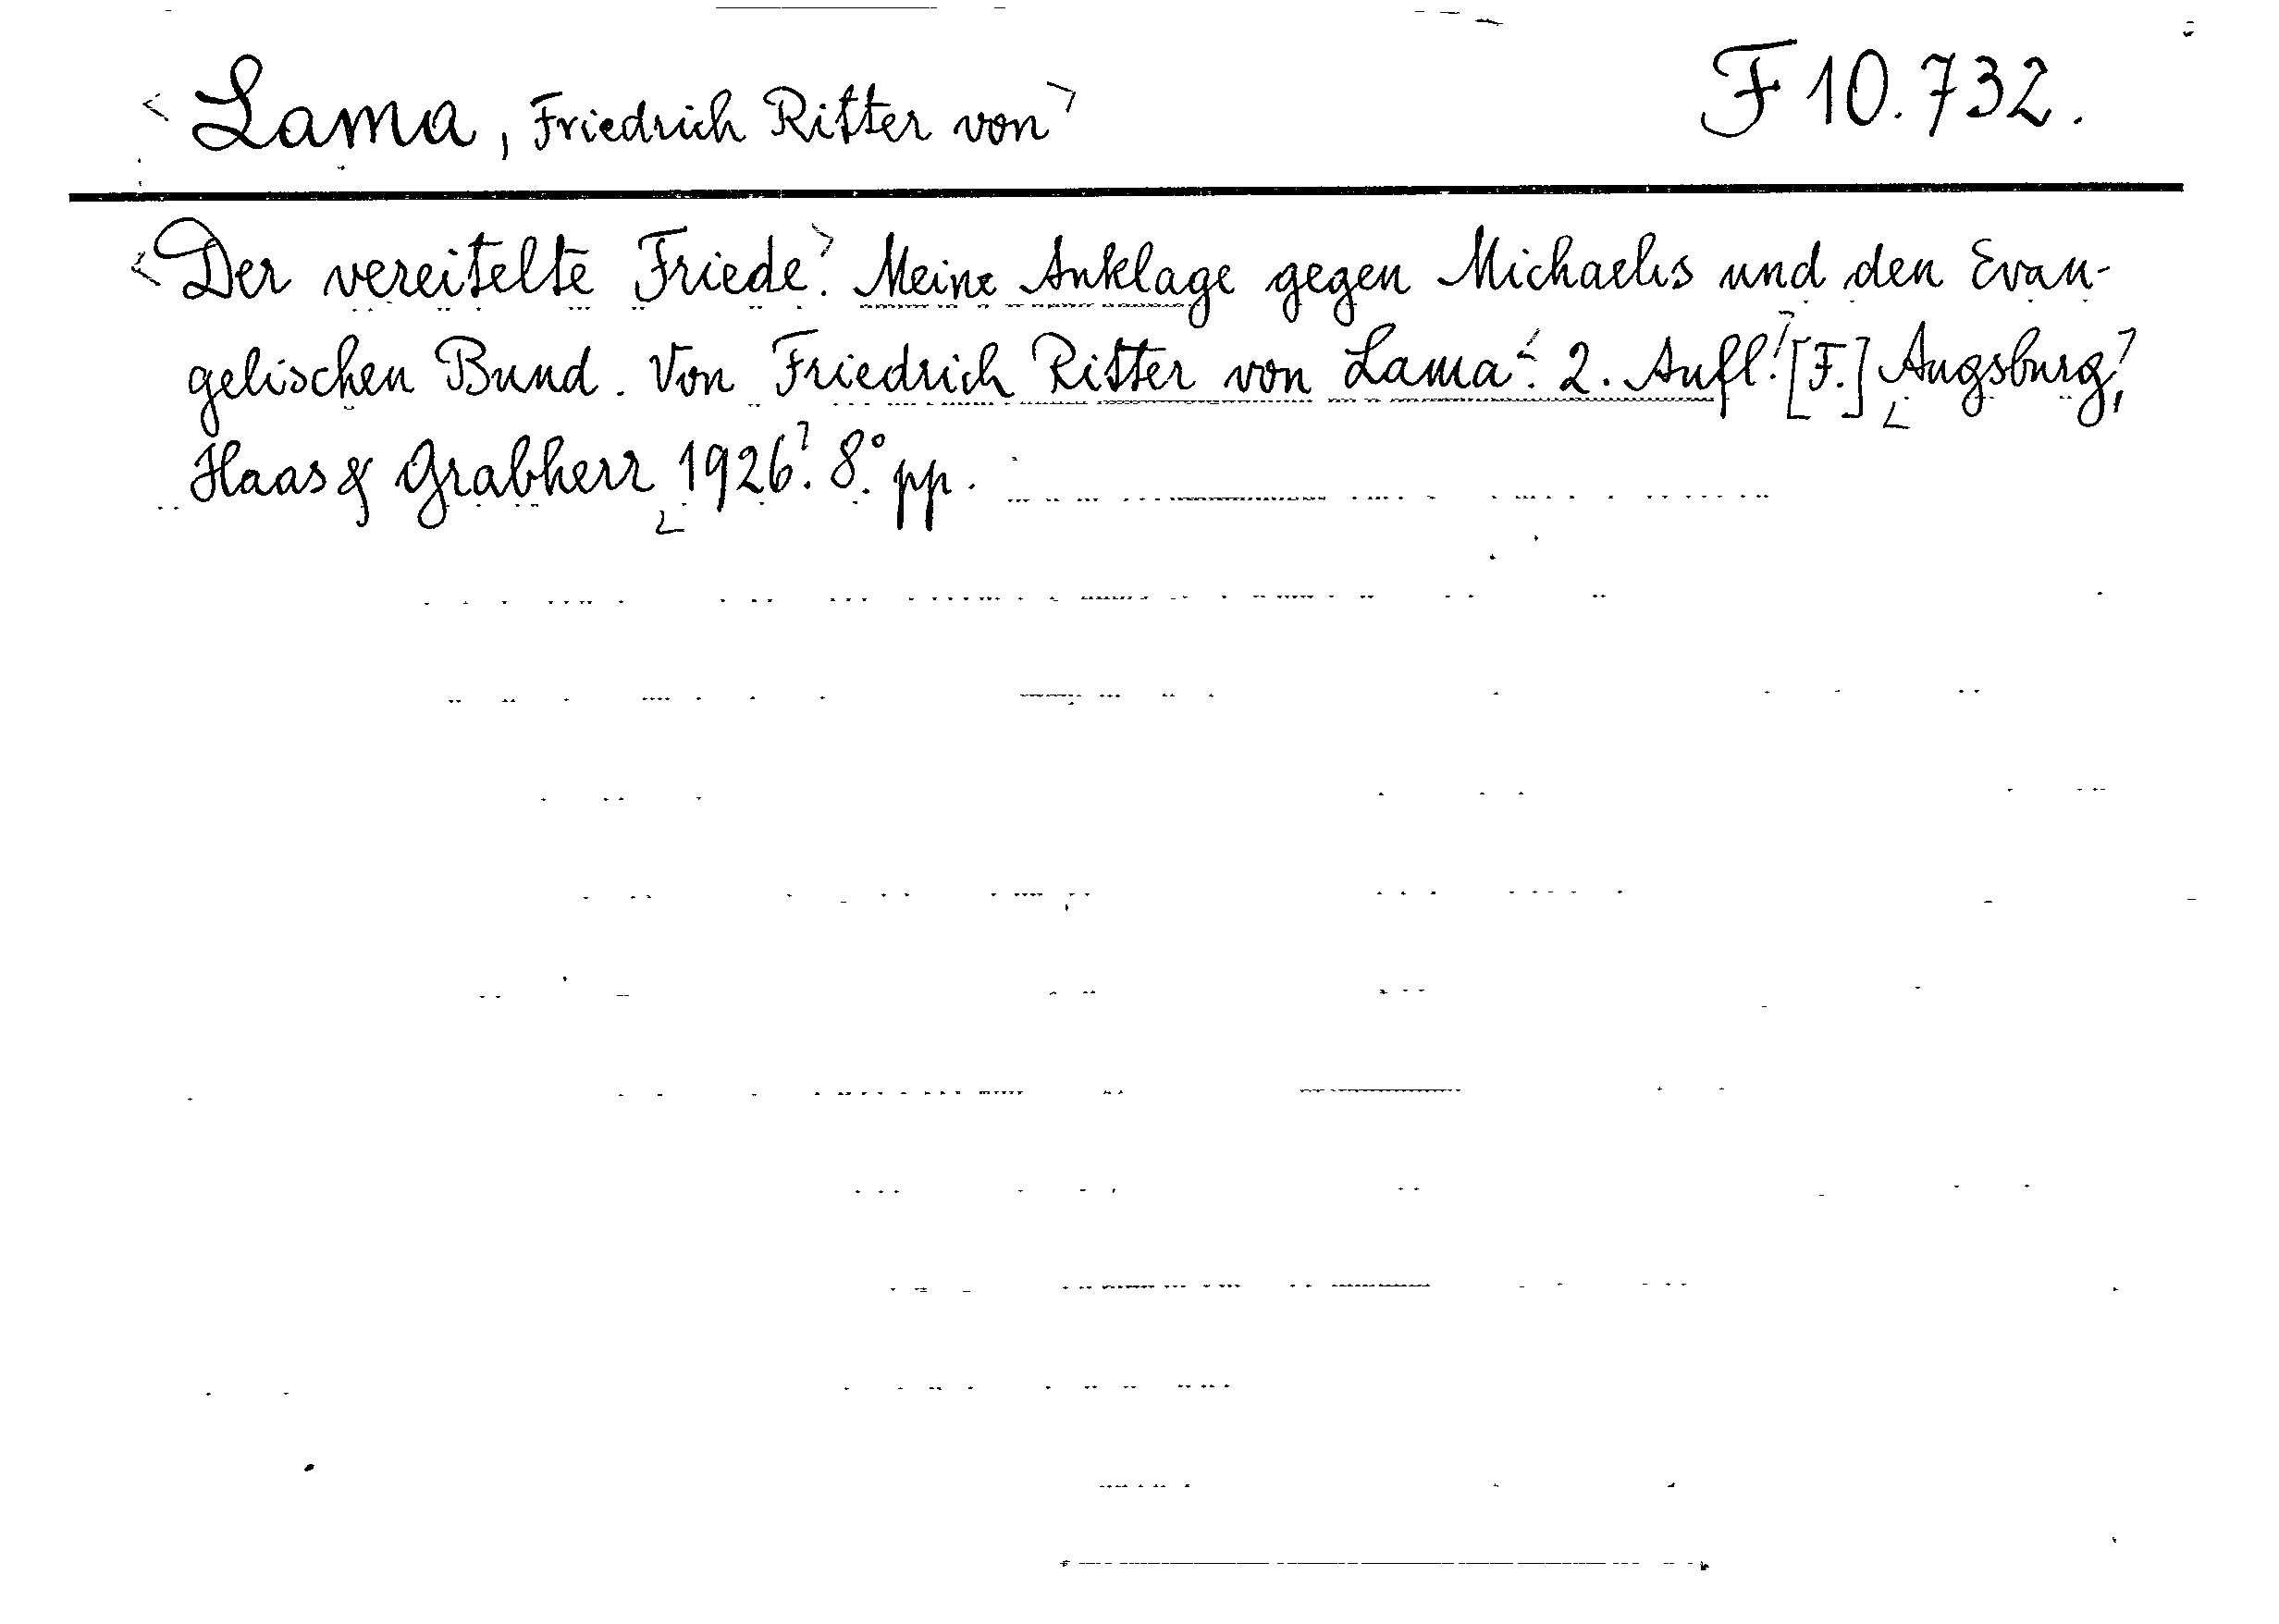 Lama, Friedrich Ritter von F 10.732.
Der vereitelte Friede. Meine Anklage gegen Michaelis und den Evan-
gelischen Bund. Von Friedrich Ritter von Lama. 2. Aufl. [F.] Augsburg,
Haas & Grabherr 1926. 8° pp.